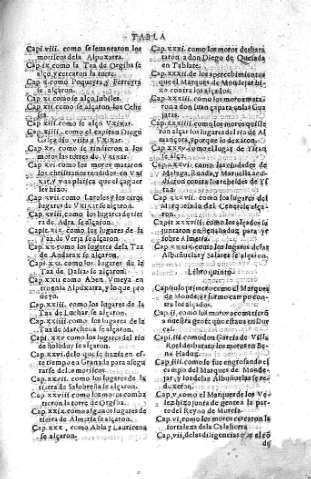 TABLA
Capi.viii. como se leuantaron los
moriscos dela Alpuxarra.
Cap.ix.como la Taa de Orgiba se
alço, y cercaron la torre.
Cap.x como Poqueyra, y Ferreyra
se alçaron.
Cap.xi como se alço Jubiles.
Cap.xii como se alçaron los Cehe
les.
Cap.xiii como se alço Vxixar.
Cap.xiiii. como el capitan Diego
Gasca fue a Vxixar.
Cap. xv. como se rindieron a los
moros las torres de Vxixar.
Cap xvi como los moros mataron
los christianos rendidos en
y
les hizo.
Cap.xvii.como Laroles y los otros
lugares de Vxixar se alçaron.
Cap.xviii, como los lugares de tier
ra de Adra se alçaron.
Capit.xix. como los lugares de la
Taa de Verja se alçaron.
Cap.xx como los lugares de la Taa
de Andarax se alçaron.
Cap.xxi.como los lugares de la
Taa de Dalias se alçaron.
Cap.xxii como Aben Vmeya en
tro en la Alpuxarra, y lo que pro
ueyo.
Cap.xxiii. como los lugares de la
Taa de Luchar se alçaron.
Cap.xxiiii. como los lugares de la
Taa de Marchena se alçaron.
Cap.xxv.como los lugares del rio
de Boloduy se alçaron.
Cap.xxvi.delo que se hazia en es-
te tiempo en Granada para asegu
rarse de los moriscos
Cap.xxvii. como los lugares de la
tierra de Salobreña se alçaron.
Cap.xxviii como los moros comba
tieron la torre de Orgiba.
Cap.xxix.como algunos lugares de
tierra de Almeria se alçaron.
Cap.xxx, como Abla y Lauricena
se alçaron.
Cap.xxxi.como los moros desbara
taron a don Diego de Quesada
en Tablate.
Cap.xxxii de los apercebimientos
que el Marques de Mondejar hi-
zo contra los alçados.
Cap.xxxiii.como los moros mata-
ron a don Juan çapata en las Gua
jaras.
Cap.xxxiiii.como los moros quisie
ron alçar los lugares del rio de Al
mançora, y porque lo dexaron.
Cap.xxxv.como el lugar de Ystan
se alço.
Cap.xxxvi. como las ciudades de
Malaga, Ronda, y Maruella acu
dieron contra los rebeldes de Ys
tan.
Cap.xxxvii. como los lugares del
Marquesado del Cenete se alça-
ron.
Capit xxxviii. como los alçados se
juntaron en Benahaduz, para yr
sobre Almeria.
Cap.xxxix.como los lugares de las
Albuñuelas y Salares se alçaron.
Libro quinto.
Capitulo primero como el Marques
de Mondejar formo campo con-
tra los alçados.
Cap.ii. como los moros acometierõ
a nuestra gente que estaua en Dur
cal.
Cap.iii. como don Garcia de Villa
Roel desbarato los moros en Be
na Haduz.
Cap.iiii.como se fue engrosando el
campo del Marques de Monde-
jar, y los de las Albuñuelas se re-
duzeron.
Cap.v,como el Marques de los Ve-
lez hizo junta de gente a la parte
del Reyno de Murcia.
Cap.vi, como los moros cercaron la
fortaleza de la Calahorra
Cap,vii,de las diligencias que el cõ
de